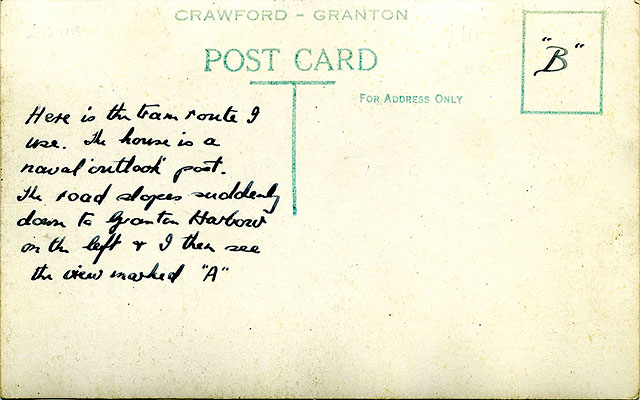 CRAWFORD - GRANTON
POST CARD
"B"
FOR ADDRESS ONLY
Here is the tram route I
use. The house is a
naval 'outlook' post.
The road slopes suddenly
down to Granton Harbour
on the left & I then see
the view marked "A"